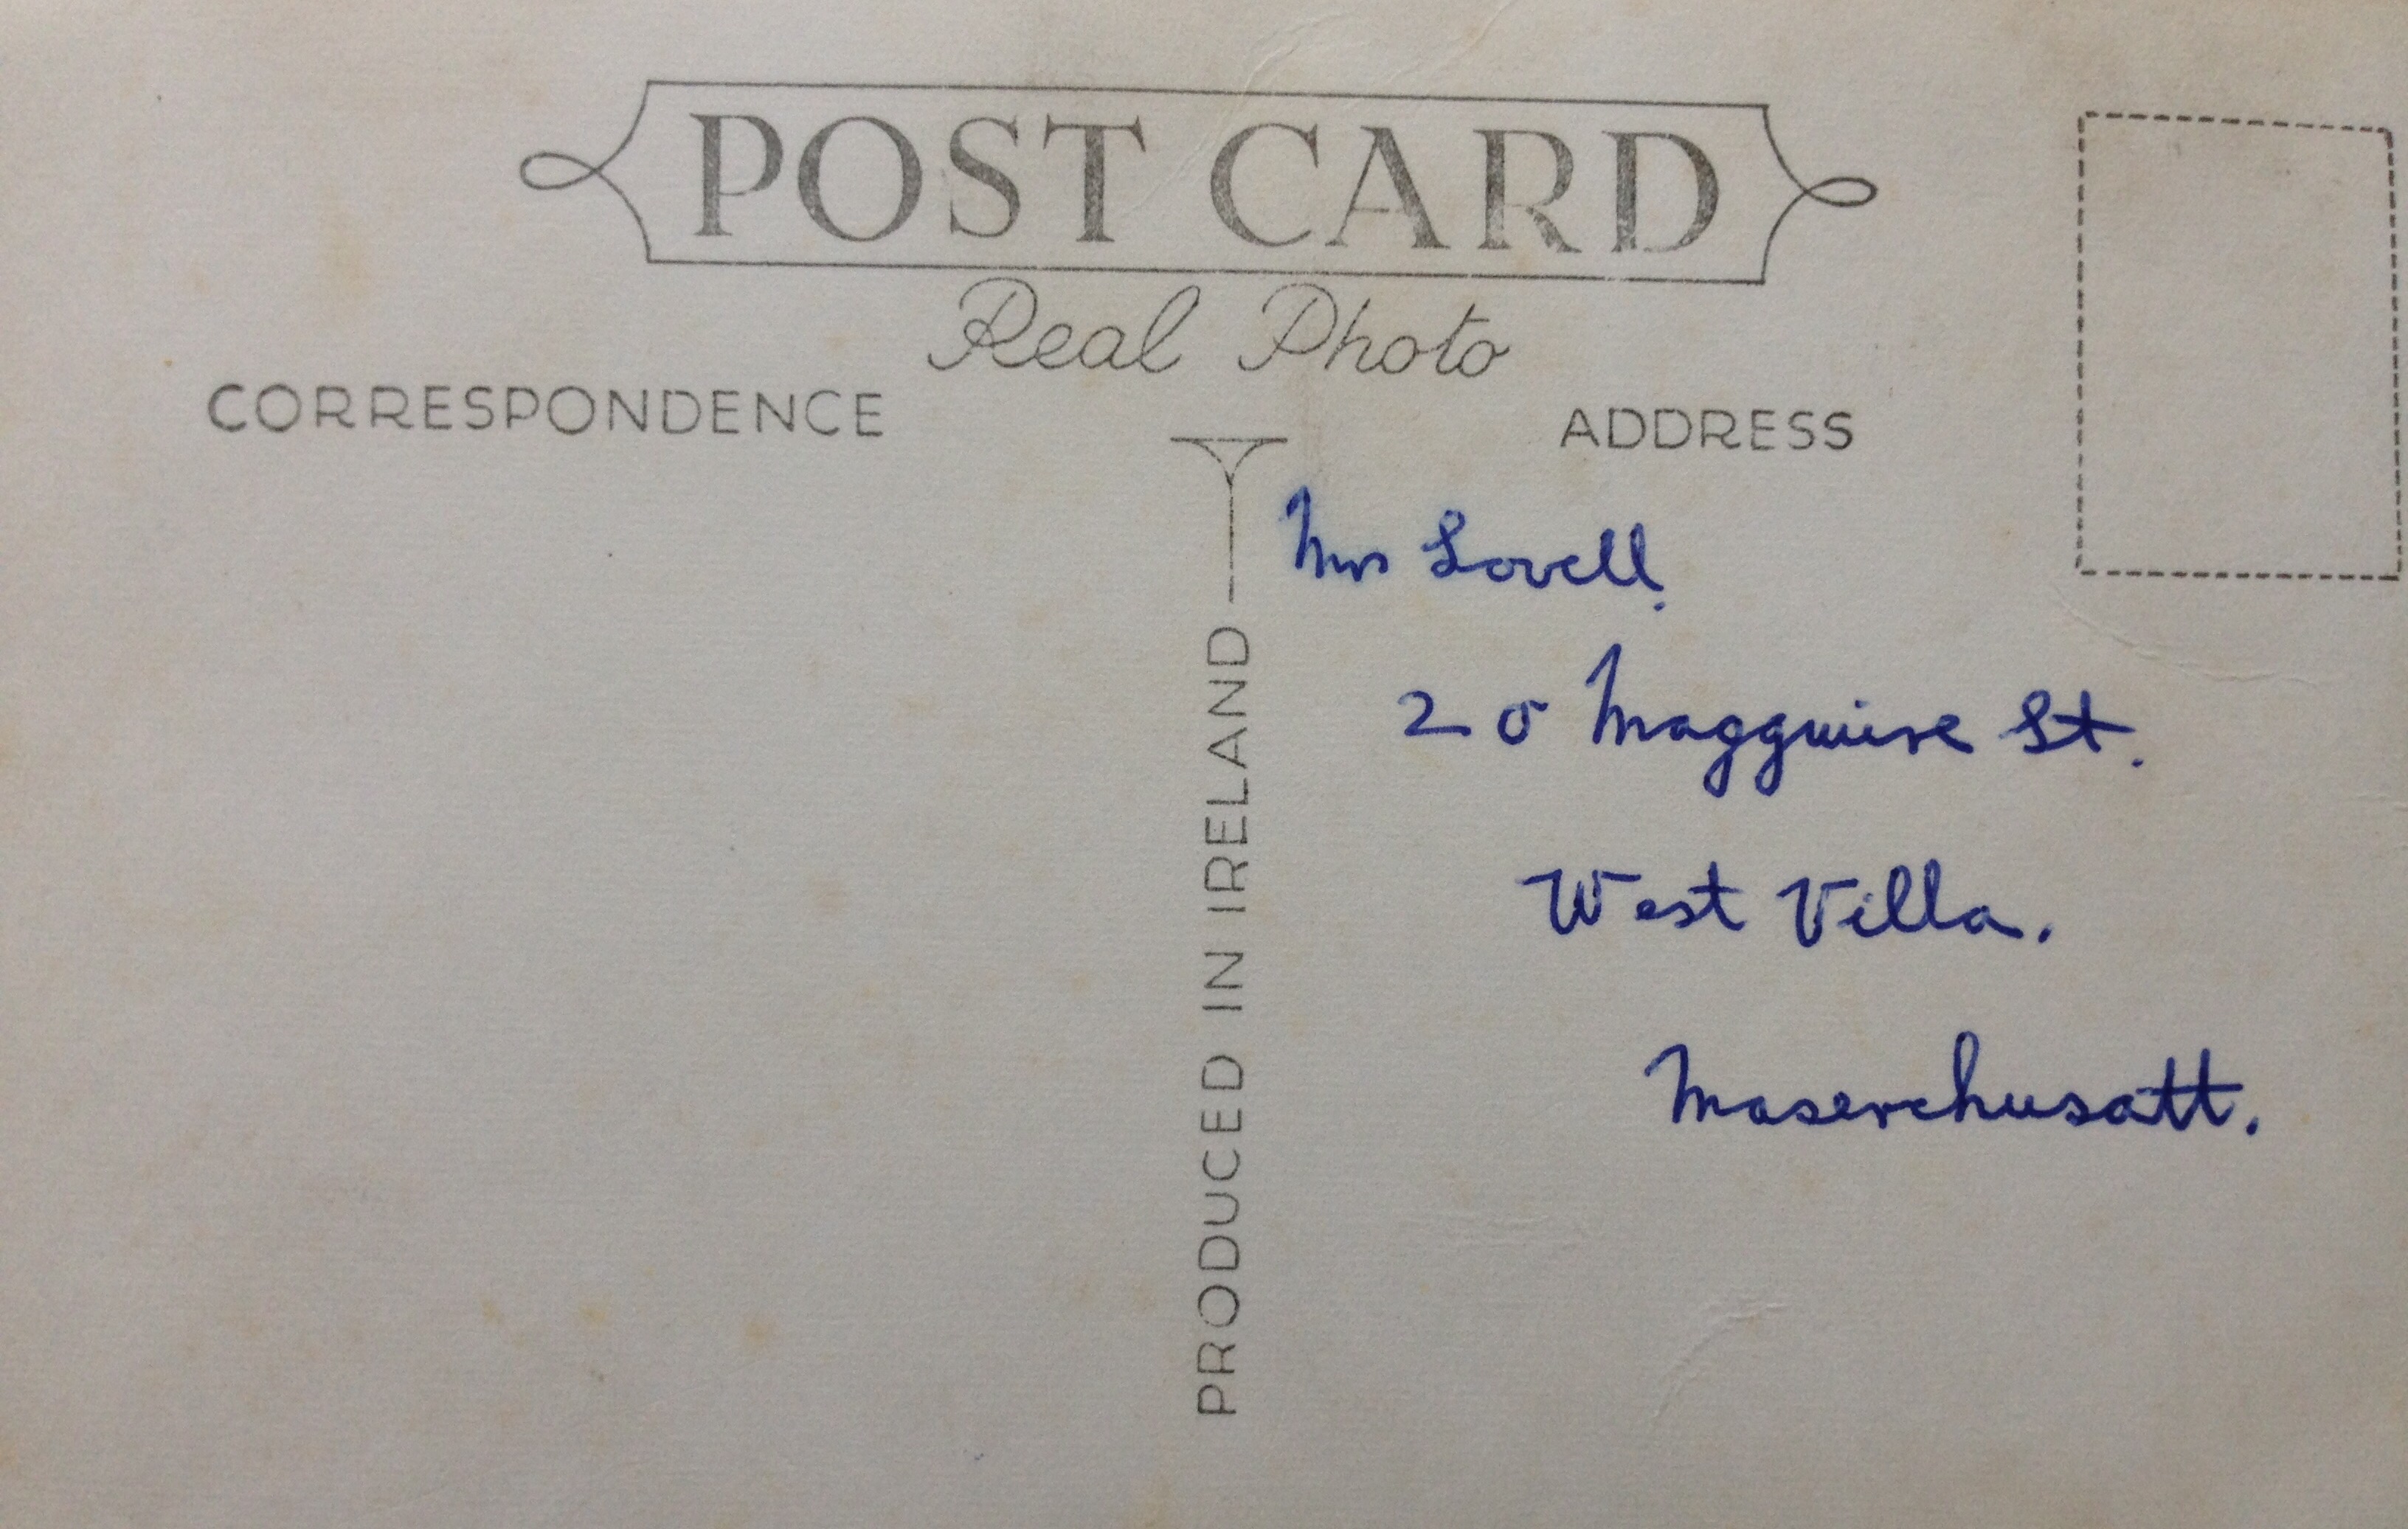 POST CARD
Real Photo
CORRESPONDENCE
ADDRESS
PRODUCED IN IRELAND
Mrs Lovell.
20 Magguire St.
West Villa.
Maserchusatt.